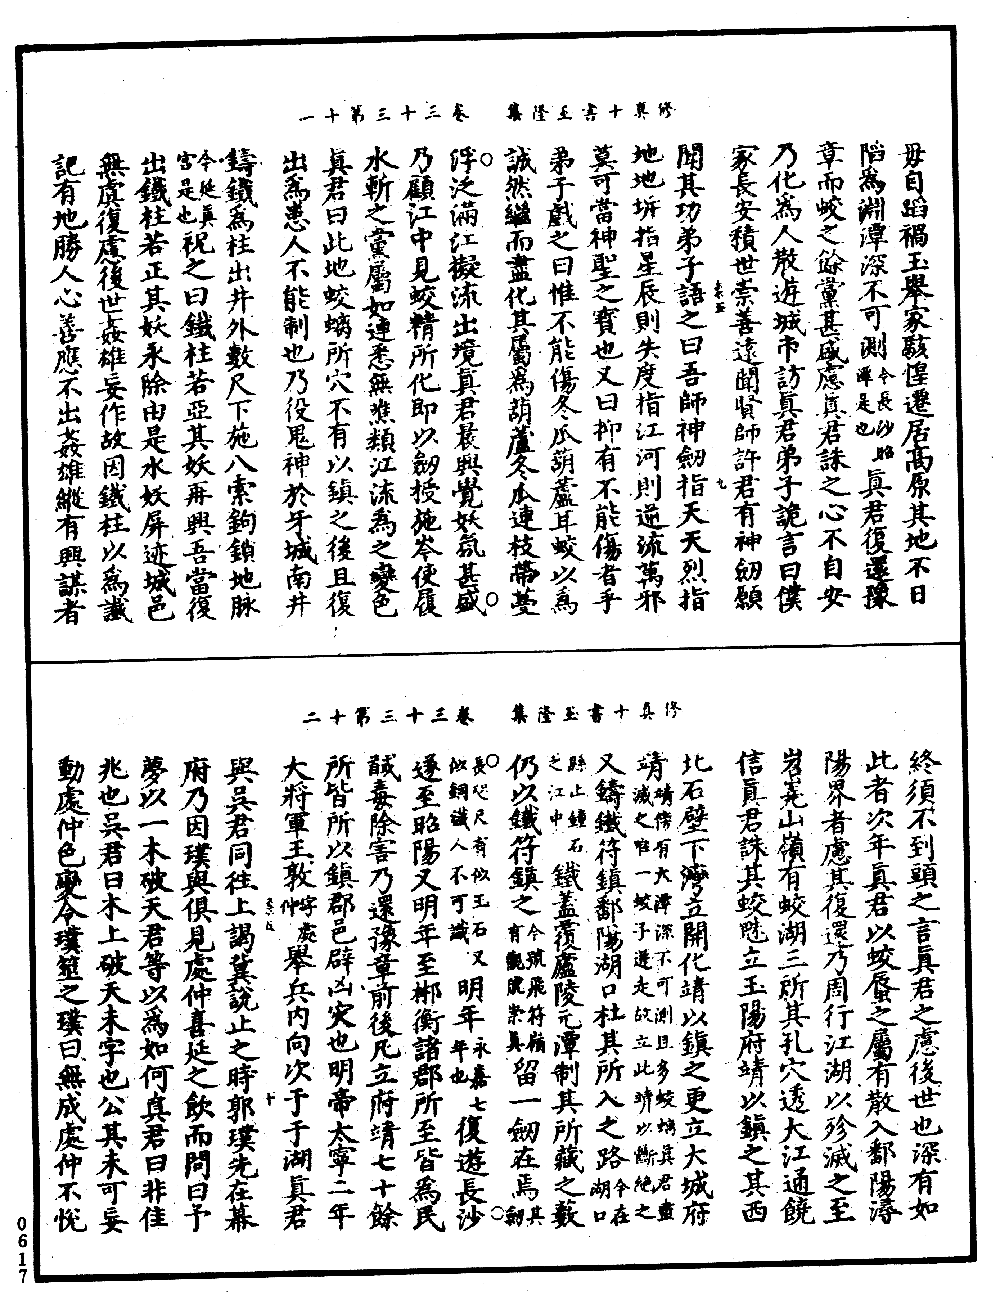 修眞十書玉隆集　卷三十三第十一
毋自蹈禍玉舉家駭惶遷居高原其地不日
陷爲淵潭深不可測今長沙昭潭是也眞君復還豫
章而蛟之餘黨甚盛慮眞君誅之心不自安
乃化爲人散遊城市訪眞君弟子詭言曰僕
家長安積世崇善遠聞賢師許君有神劒願
聞其功弟子語之曰吾師神劒指天天烈指
地地坼指星辰則失度指江河則逆流萬邪
莫可當神聖之寶也又曰抑有不能傷者乎
弟子戲之曰惟不能傷冬瓜葫蘆耳蛟以爲
誠然繼而盡化其屬爲葫蘆冬瓜連枝帶蔓
浮泛滿江擬流出境眞君晨興覺妖氛甚盛
乃顧江中見蛟精所化即以劒授施岑使履
水斬之黨屬如連悉無噍類江流爲之變色
眞君曰此地蛟螭所穴不有以鎮之後且復
出爲患人不能制也乃役鬼神於牙城南井
鑄鐵爲柱出井外數尺下施八索鉤鎖地脉
今延眞宮是也祝之曰鐵柱若亞其妖再興吾當復
出鐵柱若正其妖永除由是水妖屏迹城邑
無虞復慮後世姦雄妄作故因鐵柱以爲讖
記有地勝人心善應不出姦雄縱有興謀者
修眞十書玉隆集　卷三十三第十二
終須不到頭之言眞君之慮後世也深有如
此者次年眞君以蛟蜃之屬有散入鄱陽潯
陽界者慮其復還乃周行江湖以殄滅之至
岧嶤山嶺有蛟湖三所其孔穴透大江通饒
信眞君誅其蛟魅立玉陽府靖以鎮之其西
北石壁下灣立開化靖以鎮之更立大城府
靖靖傍有大潭深不可測且多蛟螭眞君盡滅之惟一蛟子遁走故立此靖以斷絶之
又鑄鐵符鎮鄱陽湖口杜其所入之路今在湖口縣上鐘石之江中鐵蓋覆廬陵元潭制其所藏之藪
仍以鐵符鎮之今號飛符嶺有觀號崇眞留一劒在焉其劒
長咫尺有似玉石又似銅識人不可識又明年永嘉七年也復遊長沙
遂至昭陽又明年至郴衡諸郡所至皆爲民
馘毒除害乃還豫章前後凡立府靖七十餘
所皆所以鎮郡邑辟凶灾也明帝太寧二年
大將軍王敦字處仲舉兵內向次于于湖眞君
與吳君同往上謁冀說止之時郭璞先在幕
府乃因璞與俱見處仲喜延之飲而問曰予
夢以一木破天君等以爲如何眞君曰非佳
兆也吳君曰木上破天未字也公其未可妄
動處仲色變令璞筮之璞曰無成處仲不悅
0617